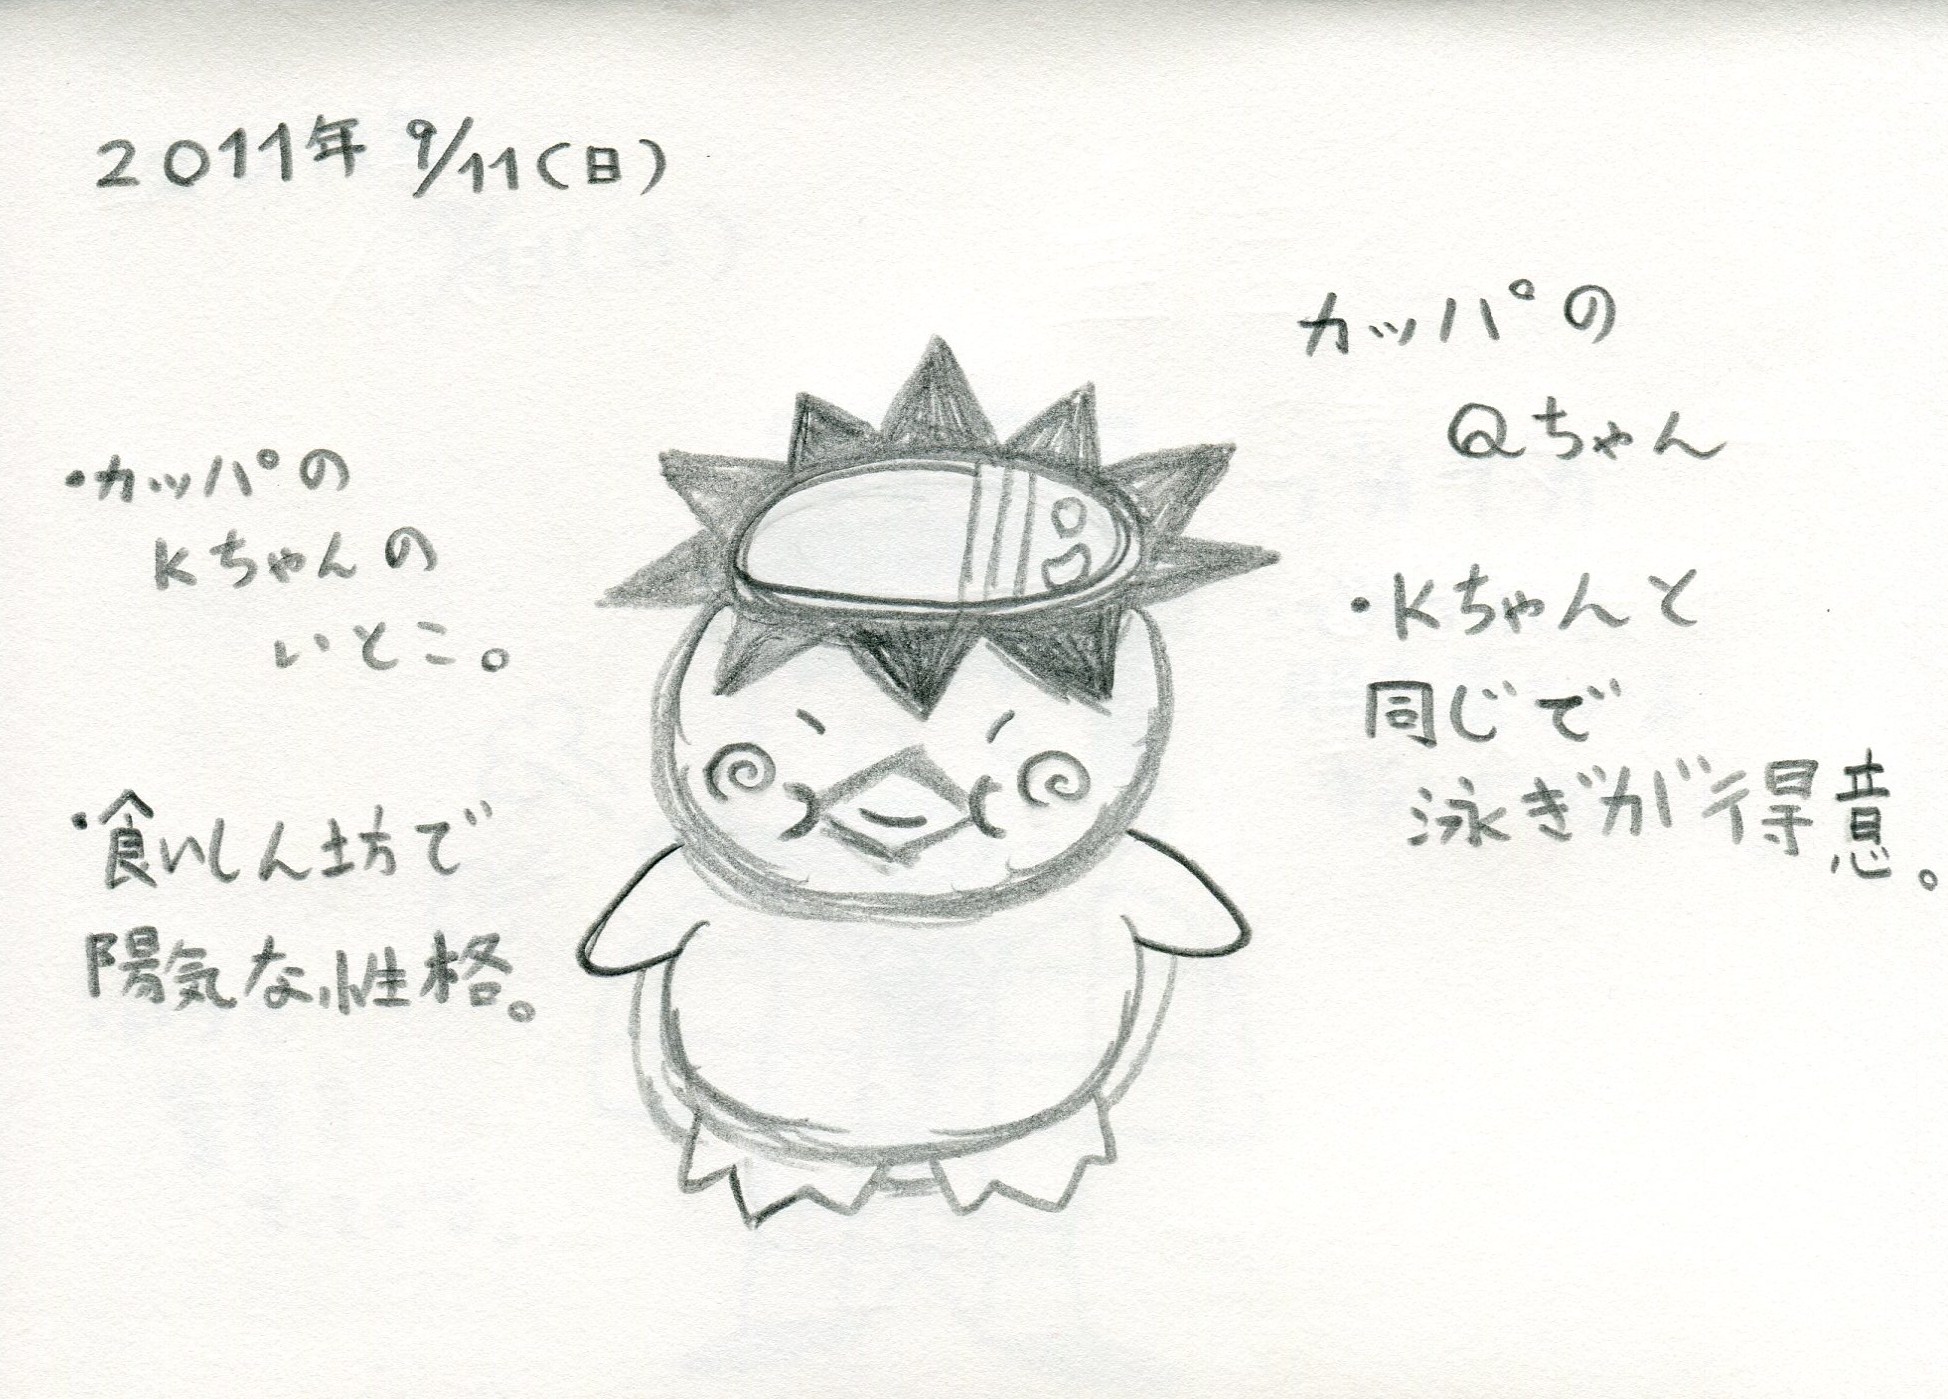 2011年 9/11(日)
カッパの
Qちゃん
・カッパの
Kちゃんの
いとこ。
・食いしん坊で
陽気な性格。
・Kちゃんと
同じで
泳ぎが得意。